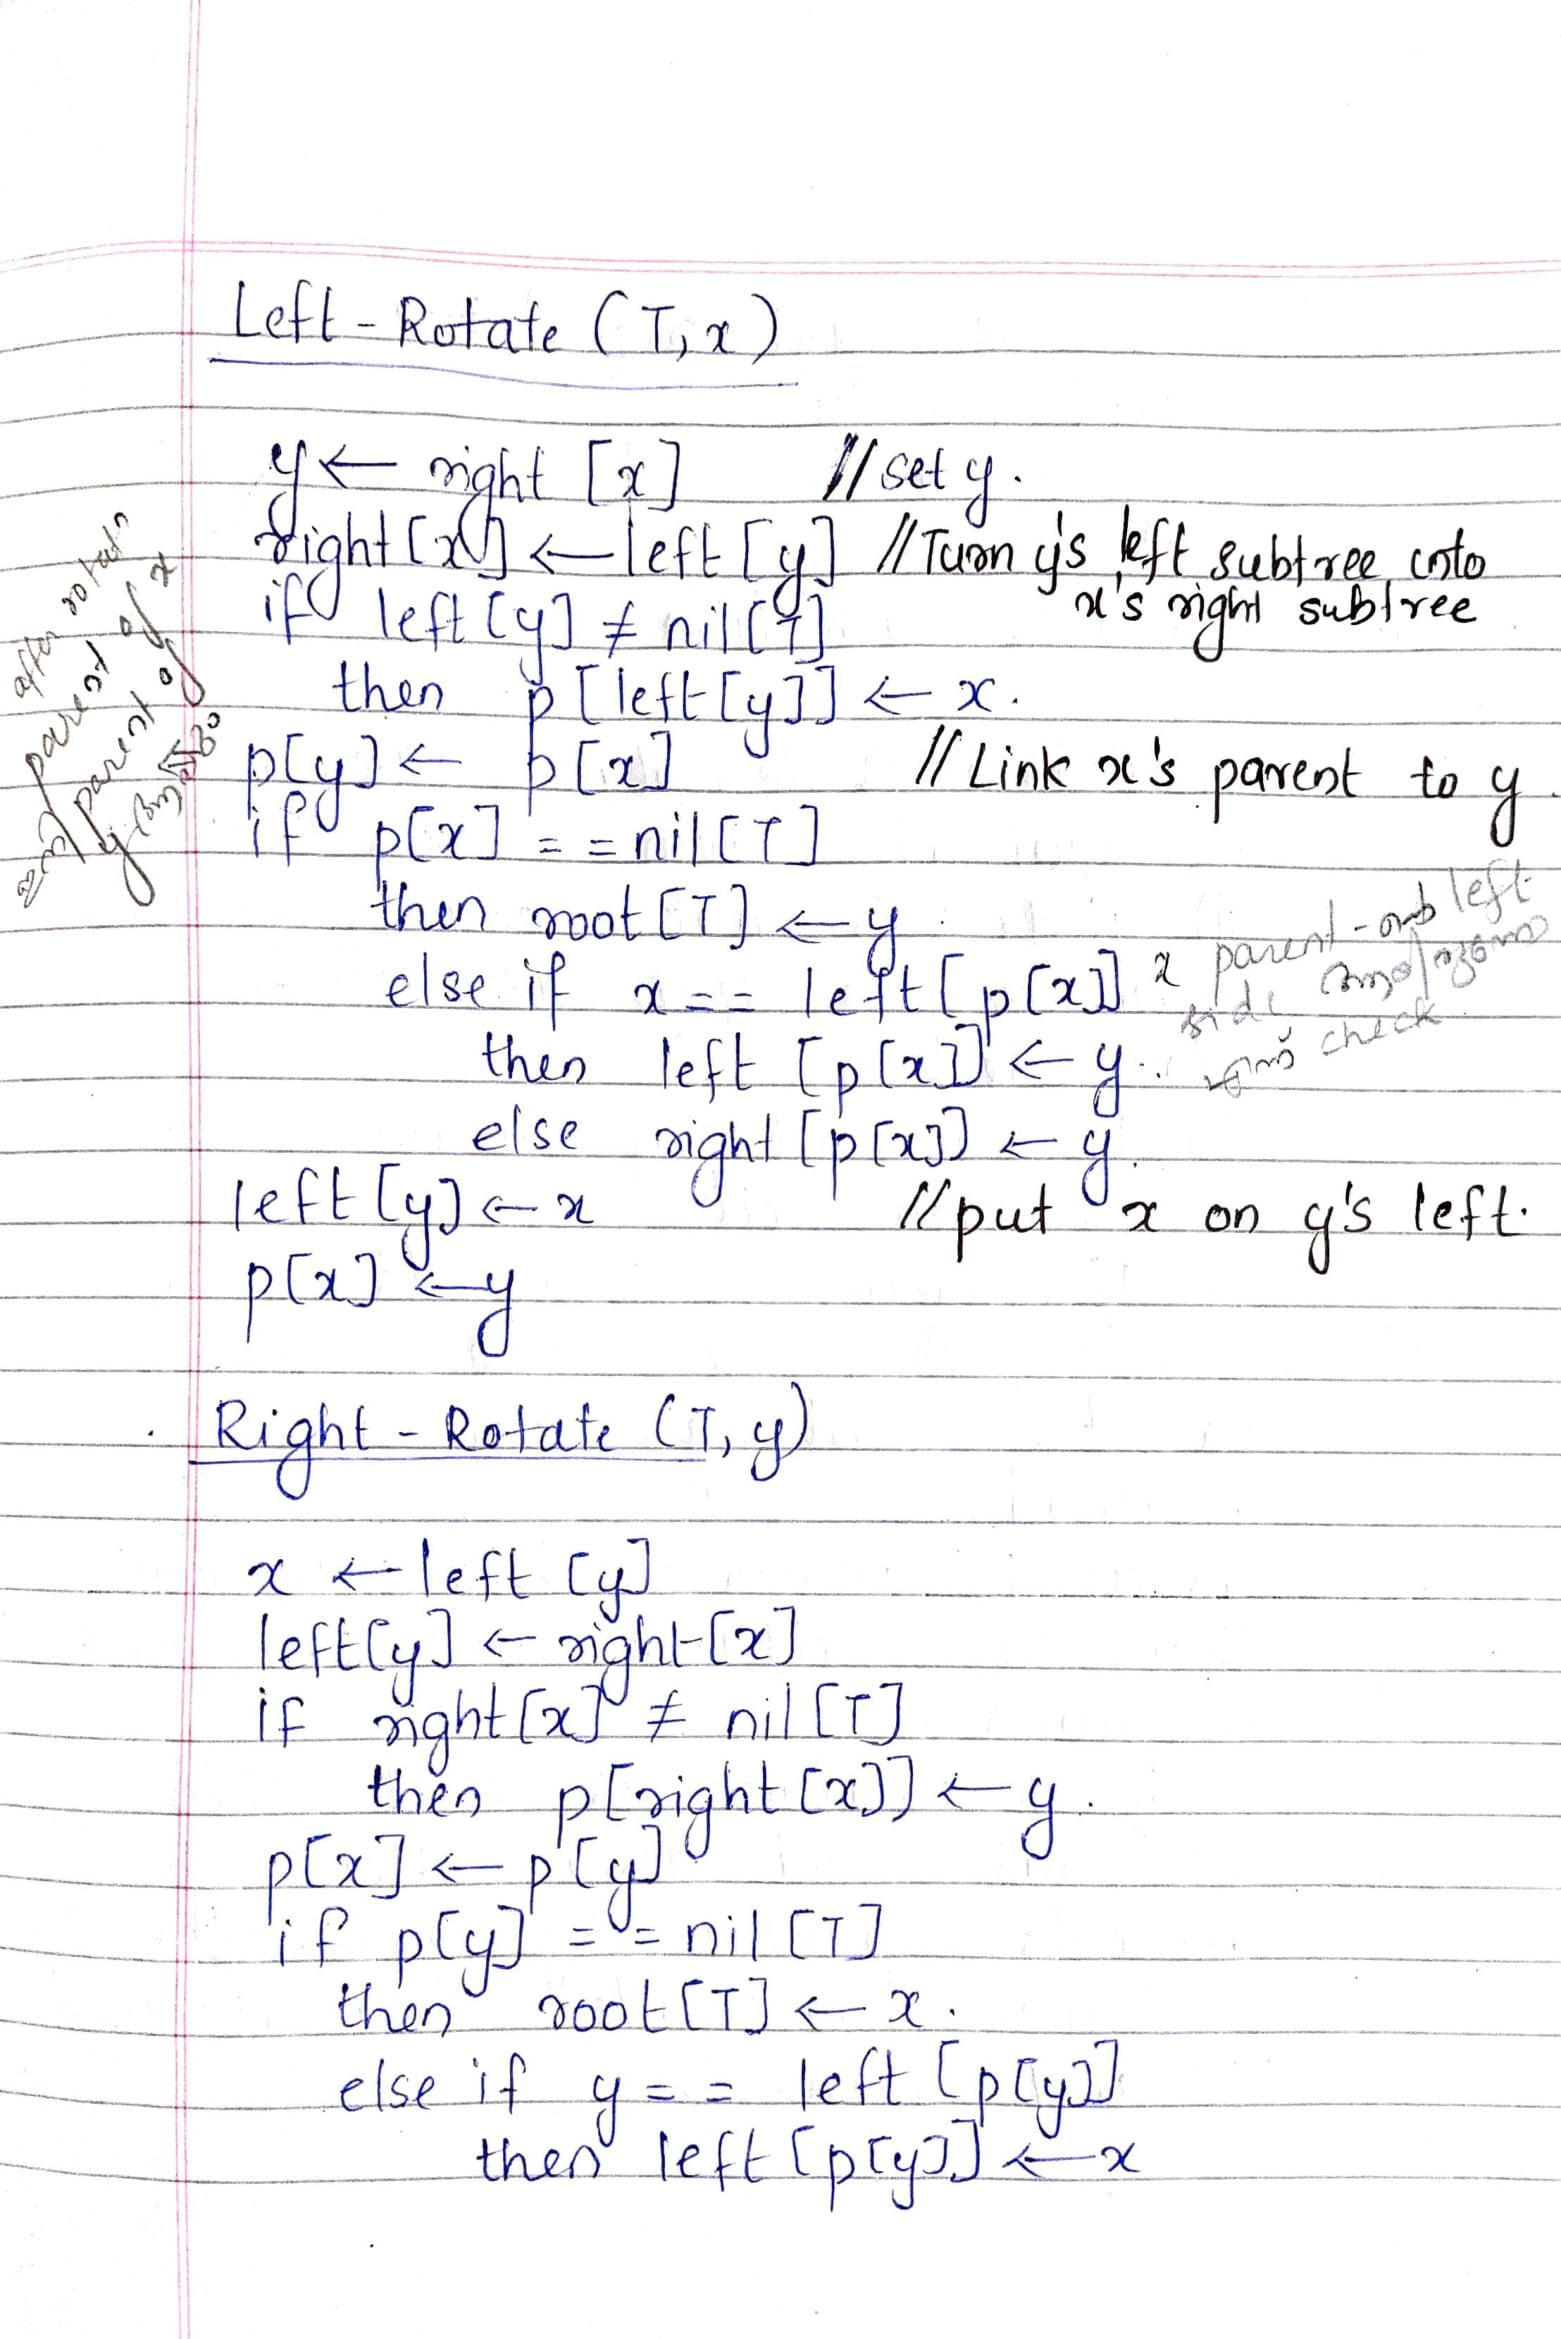 Left-Rotate (T, x)
y ← right [x] // set y.
right [x] ← left [y] // Turn y's left subtree into
x's right subtree
if left [y] ≠ nil [T]
then p [left [y]] ← x.
p[y] ← p[x] // Link x's parent to y.
if p[x] == nil [T]
then root [T] ← y
else if x == left [p[x]]
then left [p[x]] ← y.
else right [p[x]] ← y.
left [y] ← x // put x on y's left.
p[x] ← y
after rotatn
parent of x
parent of
y
x parent- left
side
check
Right-Rotate (T, y)
x ← left [y]
left [y] ← right [x]
if right [x] ≠ nil [T]
then p [right [x]] ← y.
p[x] ← p[y]
if p[y] == nil [T]
then root [T] ← x.
else if y == left [p[y]]
then left [p[y]] ← x